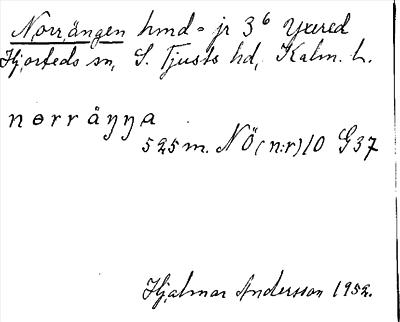 Norrängen hmd = jr 3⁶ Yxered
Hjorteds sn, S. Tjusts hd, Kalm. L.
nɵrråŋŋa
525 m. NÖ (n:r) 10 G37
Hjalmar Andersson 1952.